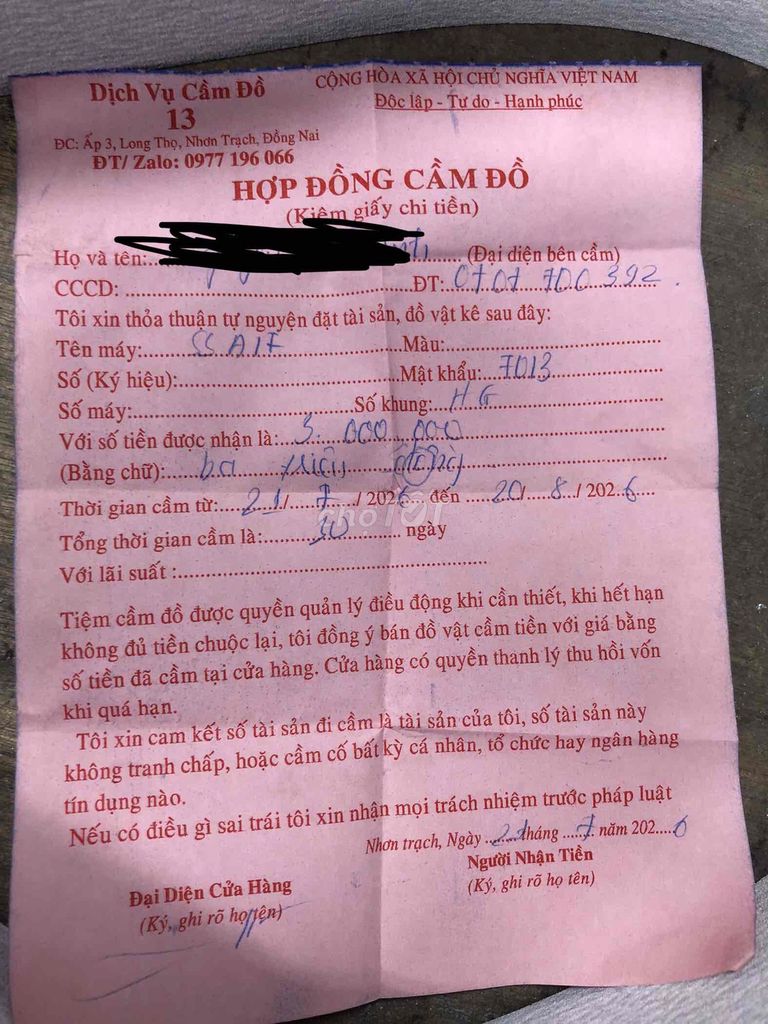 Dịch Vụ Cầm Đồ
13
ĐC: Ấp 3, Long Thọ, Nhơn Trạch, Đồng Nai
ĐT/ Zalo: 0977 196 066
CỘNG HÒA XÃ HỘI CHỦ NGHĨA VIỆT NAM
Độc lập - Tự do - Hạnh phúc
HỢP ĐỒNG CẦM ĐỒ
(Kiêm giấy chi tiền)
Họ và tên:.................... (Đại diện bên cầm)
CCCD: ....................ĐT: 0707 700 392.
Tôi xin thỏa thuận tự nguyện đặt tài sản, đồ vật kê sau đây:
Tên máy:........SS A17........Màu:....................
Số (Ký hiệu):....................Mật khẩu: 7013
Số máy:....................Số khung: HG
Với số tiền được nhận là: 3.000.000
(Bằng chữ): ba triệu
Thời gian cầm từ: 21/ 7 / 2026 đến 20/ 8 / 2026
Tổng thời gian cầm là: 30 ngày
Với lãi suất :....................
chợ TỐT
Tiệm cầm đồ được quyền quản lý điều động khi cần thiết, khi hết hạn
không đủ tiền chuộc lại, tôi đồng ý bán đồ vật cầm tiền với giá bằng
số tiền đã cầm tại cửa hàng. Cửa hàng có quyền thanh lý thu hồi vốn
khi quá hạn.
Tôi xin cam kết số tài sản đi cầm là tài sản của tôi, số tài sản này
không tranh chấp, hoặc cầm cố bất kỳ cá nhân, tổ chức hay ngân hàng
tín dụng nào.
Nếu có điều gì sai trái tôi xin nhận mọi trách nhiệm trước pháp luật
Nhơn trạch, Ngày 21 tháng 7 năm 2026
Đại Diện Cửa Hàng
(Ký, ghi rõ họ tên)
Người Nhận Tiền
(Ký, ghi rõ họ tên)